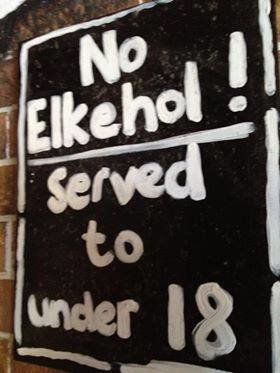 No
Elkehol!
served
to
under 18